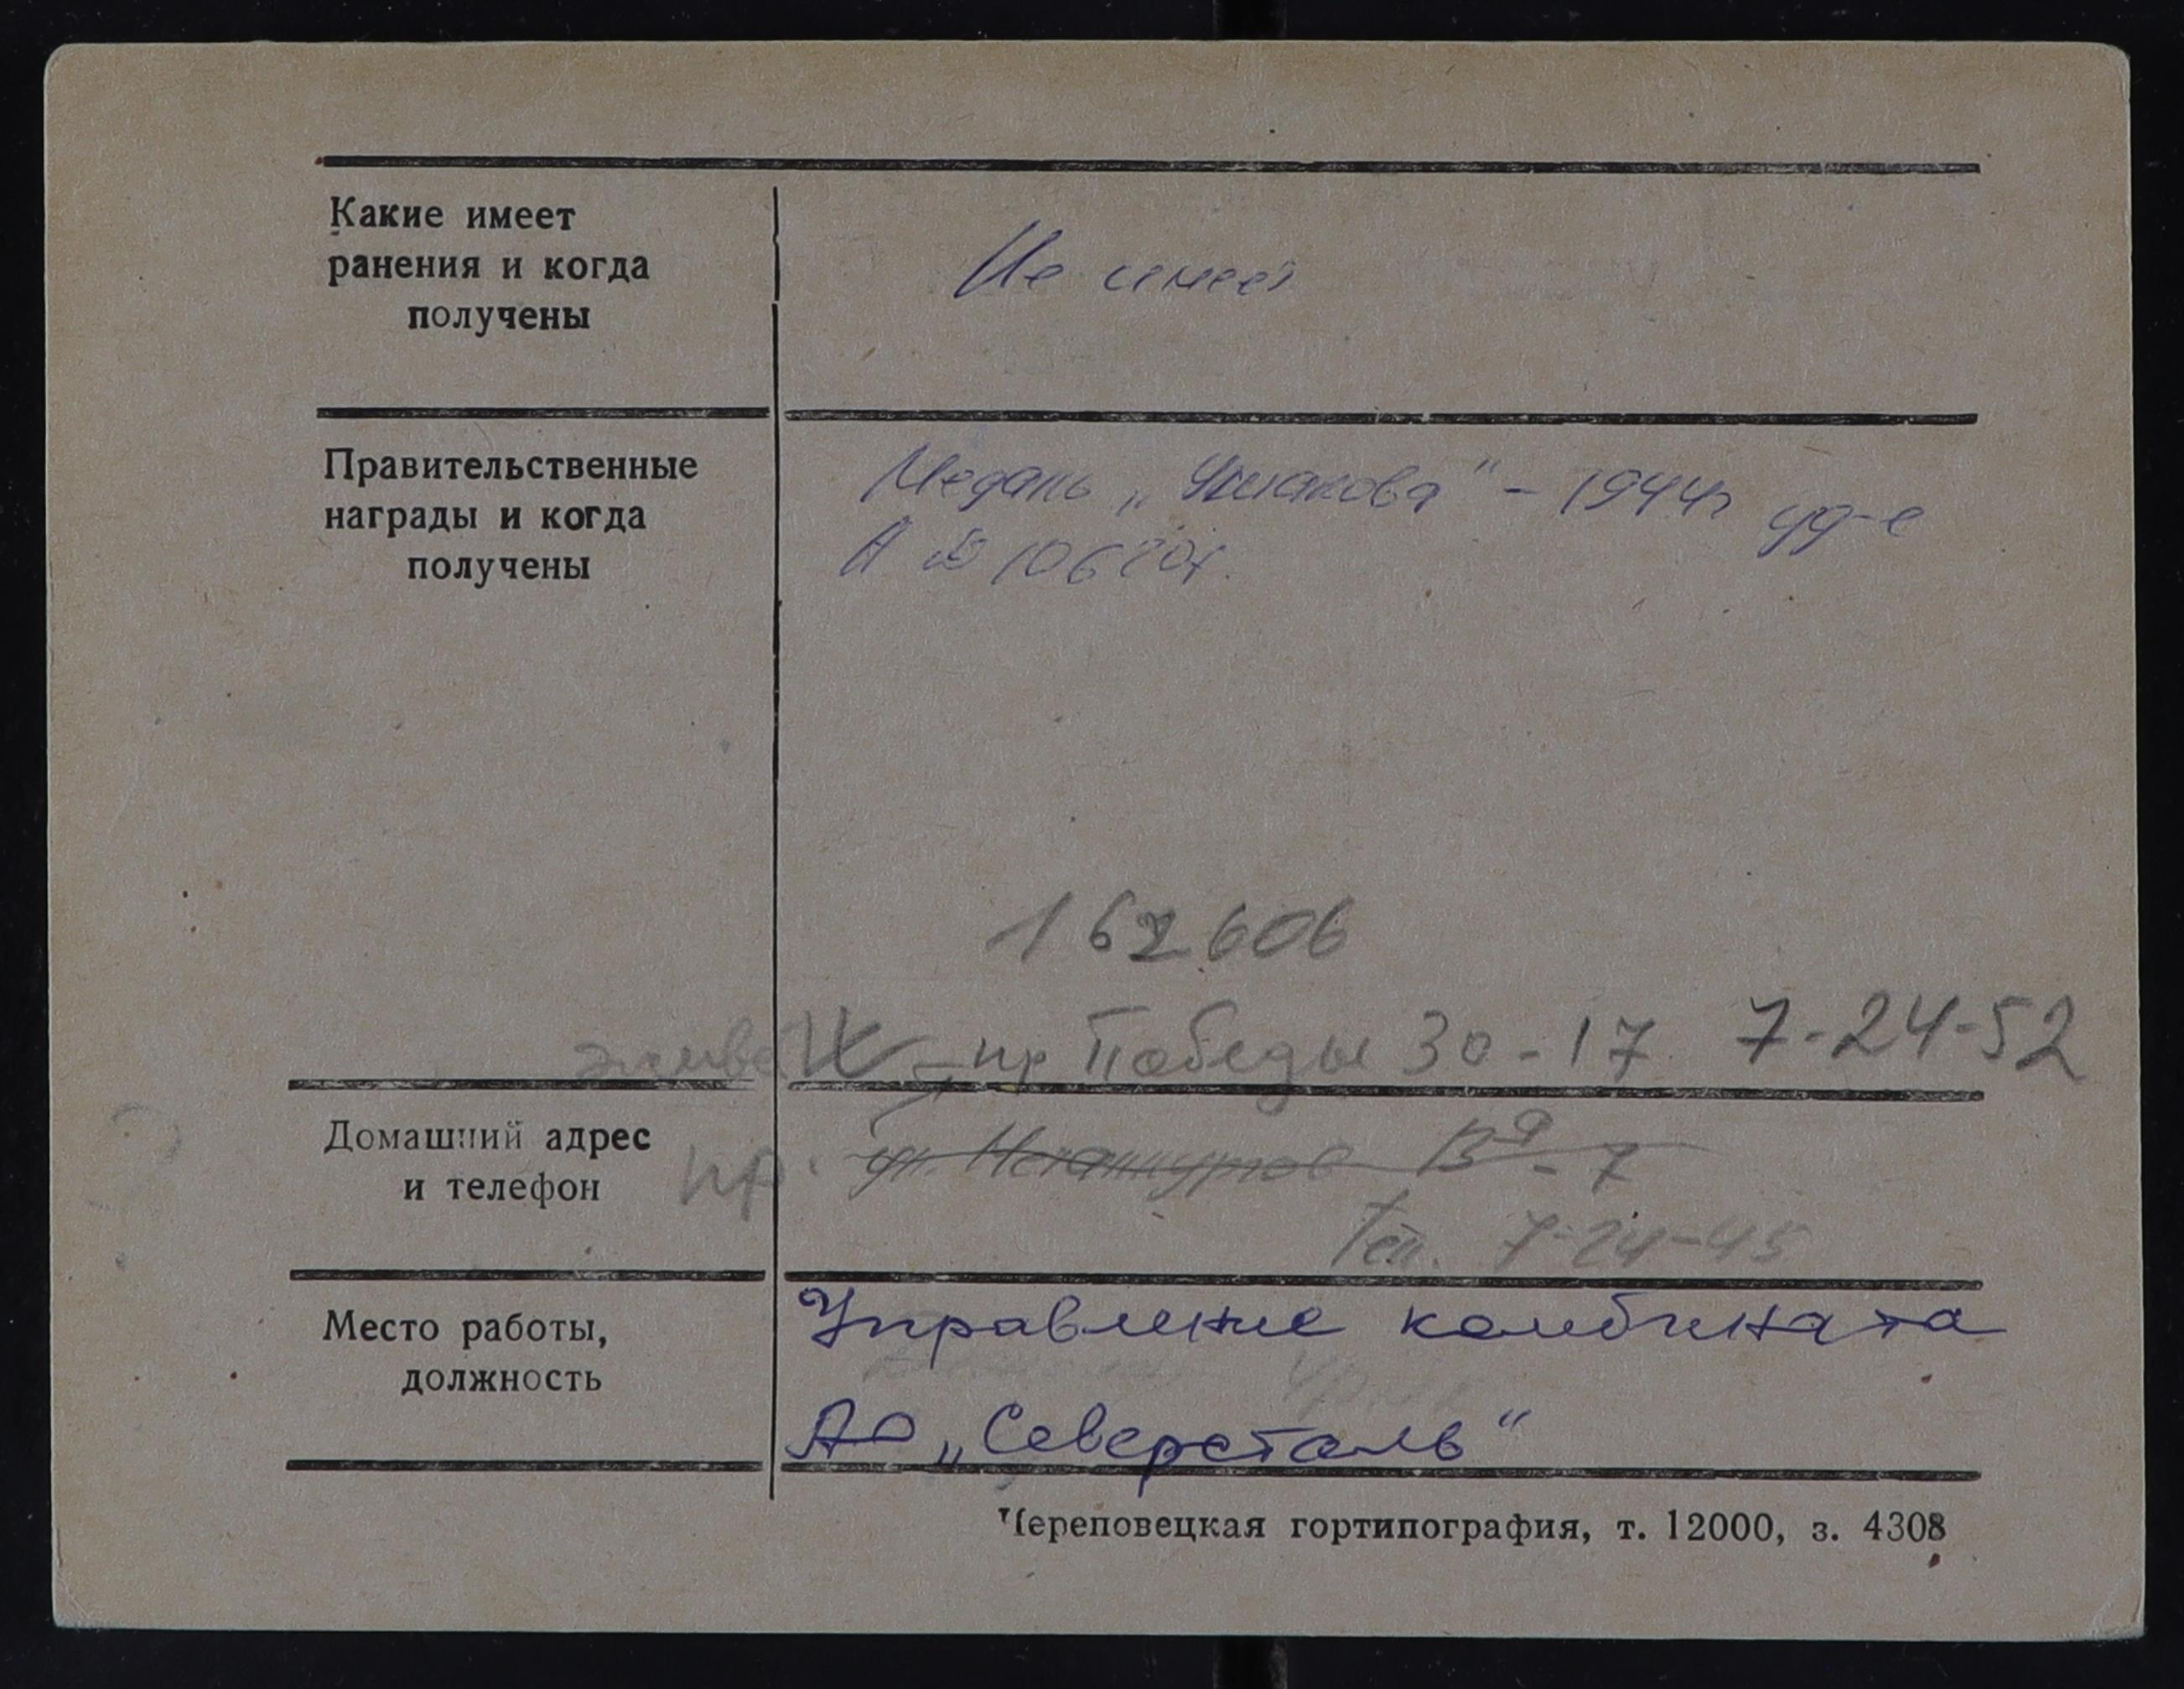 Какие имеет
ранения и когда
получены
Не имеет
Правительственные
награды и когда
получены
Медаль „Ушакова“ – 1944г уд-е
А №
162606
живет – пр Победы 30-17 7-24-52
Домашний адрес
и телефон
пр.
ул. 7
Тел. 7-24-45
Место работы,
должность
Управление комбината
АО „Северсталь“
Череповецкая гортипография, т. 12000, з. 4308